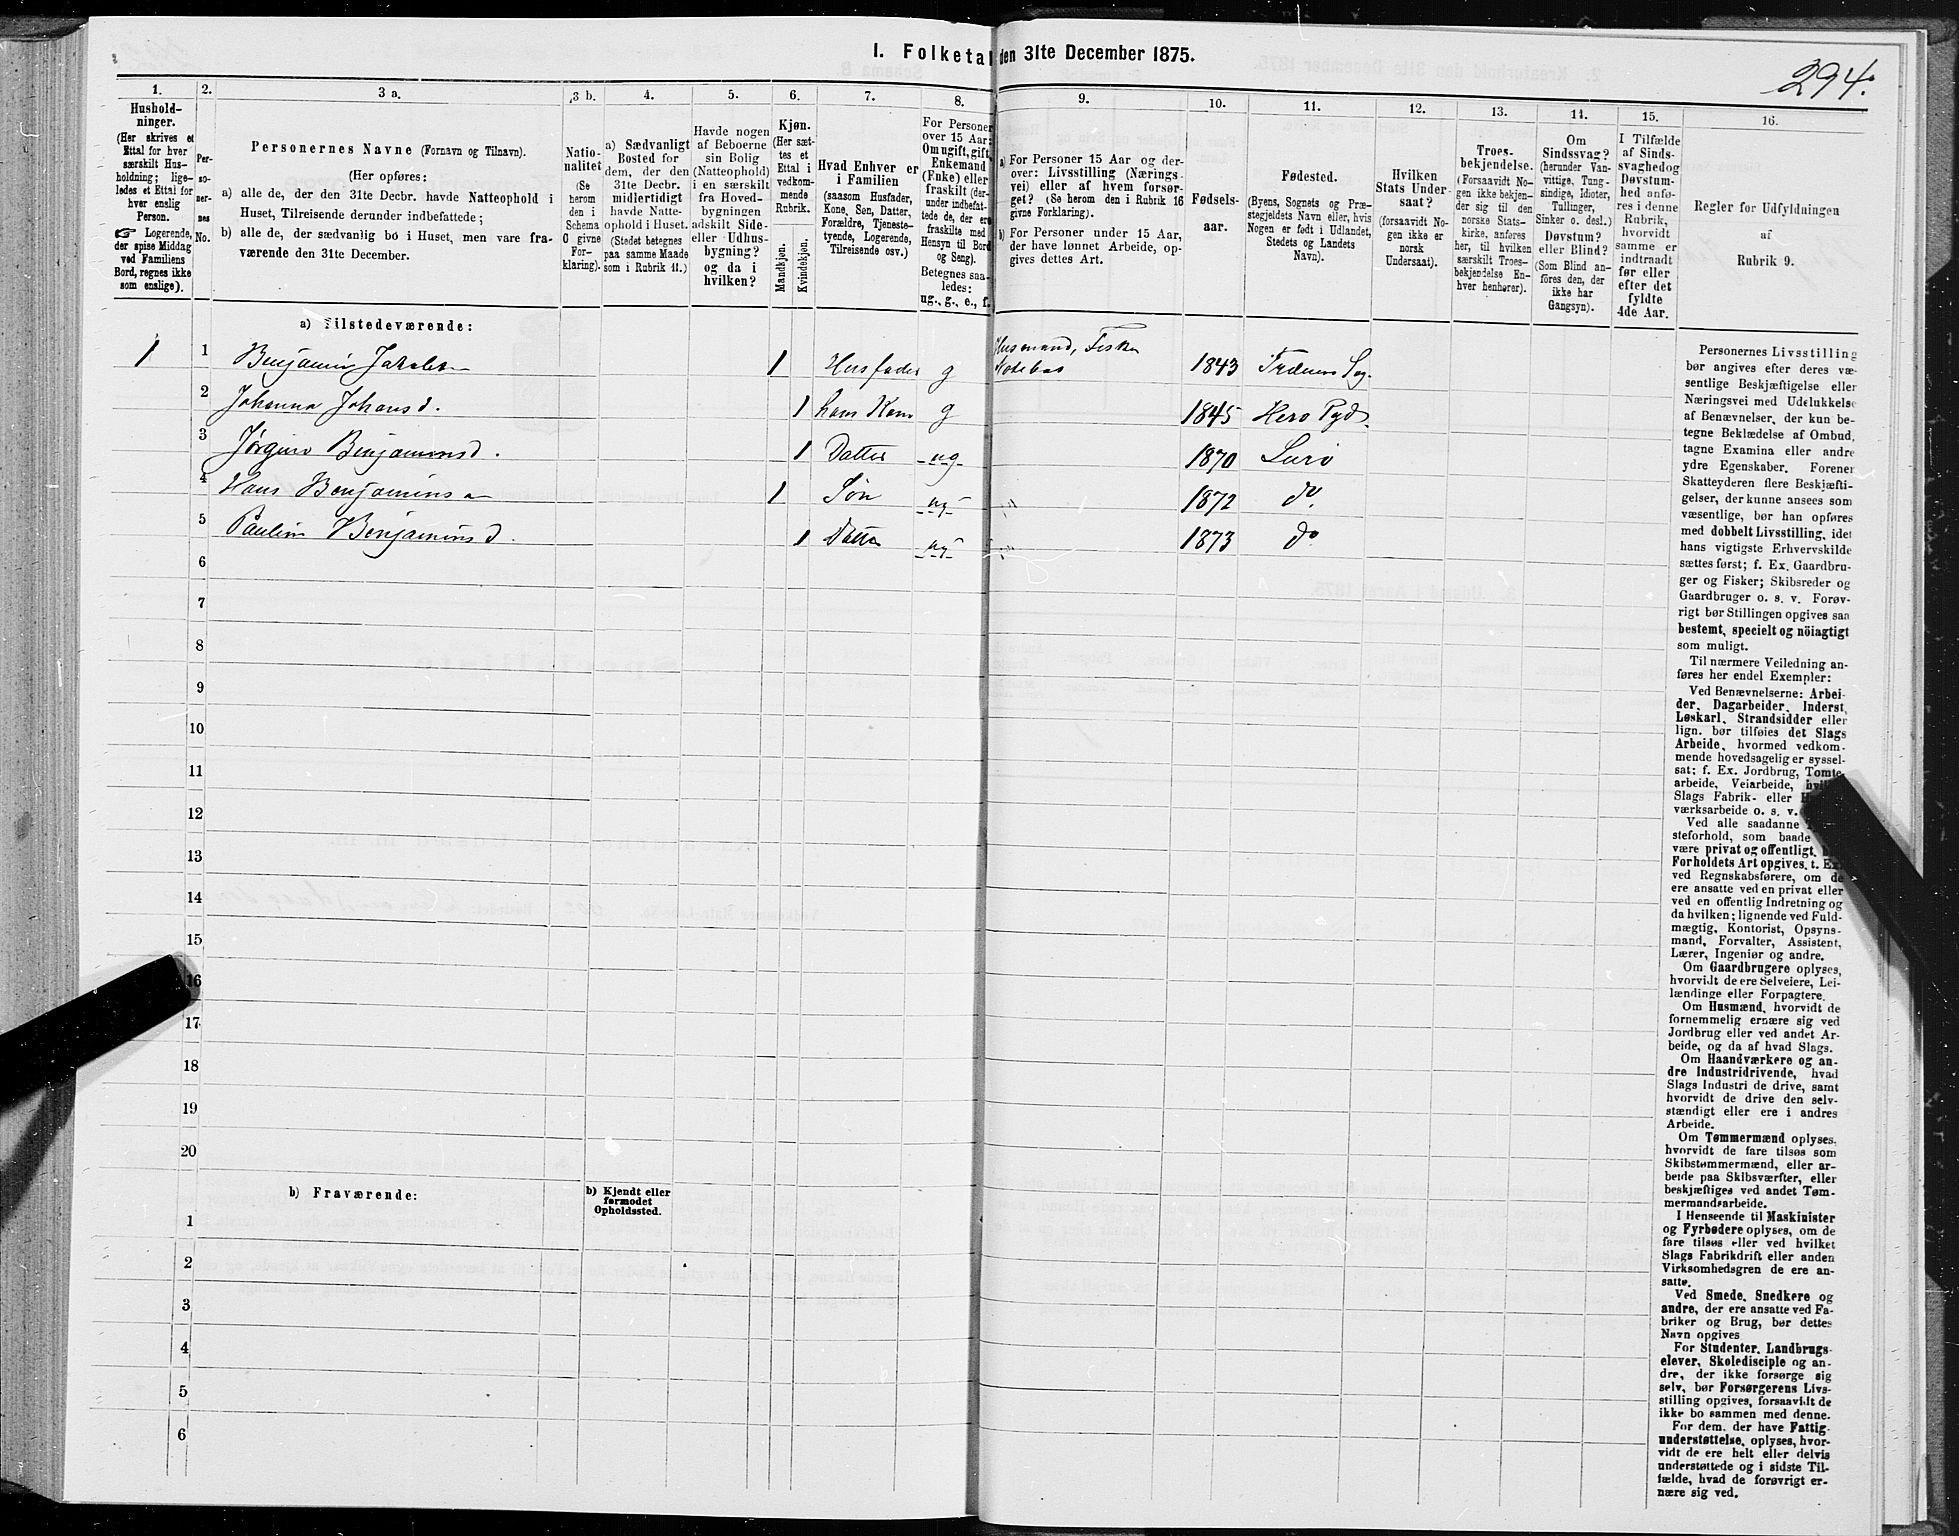 I. Folketal den 31te December 1875.
294.
1.
Hushold-
ninger.
(Her skrives et
Ettal for hver
særskilt Hus-
holdning; lige-
ledes et Ettal for
hver enslig
Person.
☞ Logerende,
der spise Middag
ved Familiens
Bord, regnes ikke
som enslige).
2.
Per-
so-
ner-
nes
No.
3 a.
Personernes Navne (Fornavn og Tilnavn).
(Her opføres:
a) alle de, der den 31te Decbr. havde Natteophold i
Huset, Tilreisende derunder indbefattede;
b) alle de, der sædvanlig bo i Huset, men vare fra-
værende den 31te December.
3 b.
Natio-
nalitet
(Se
herom
den i
Schema
C givne
For-
klaring).
4.
a) Sædvanligt
Bosted for
dem, der den
31te Decbr.
midlertidigt
havde Natte-
ophold i Huset.
(Stedet betegnes
paa samme Maade
som i Rubrik 11.)
5.
Havde nogen
af Beboerne
sin Bolig
(Natteophold)
i en særskilt
fra Hoved-
bygningen
adskilt Side-
eller Udhus-
bygning?
og da i
hvilken?
6.
Kjøn.
(Her sæt-
tes et
Ettal i
vedkom-
mende
Rubrik.
Mandkjøn.
Kvindekjøn.
7.
Hvad Enhver er
i Familien
(saasom Husfader,
Kone, Søn, Datter,
Forældre, Tjeneste-
tyende, Logerende,
Tilreisende osv.)
8.
For Personer
over 15 Aar:
Om ugift, gift,
Enkemand
(Enke) eller
fraskilt (der-
under indbefat-
tede de, der ere
fraskilte med
Hensyn til Bord
og Seng).
Betegnes saa-
ledes:
ug., g., e., f.
9.
a) For Personer 15 Aar og der-
over: Livsstilling (Nærings-
vei) eller af hvem forsør-
get? (Se herom den i Rubrik 16
givne Forklaring).
b) For Personer under 15 Aar,
der have lønnet Arbeide, op-
gives dettes Art.
10.
Fødsels-
aar.
11.
Fødested.
(Byens, Sognets og Præ-
stegjeldets Navn eller, hvis
Nogen er født i Udlandet,
Stedets og Landets
Navn).
12.
Hvilken
Stats Under-
saat?
(forsaavidt No-
gen ikke er
norsk
Undersaat).
13.
Troes-
bekjendelse.
(Forsaavidt No-
gen ikke bekjen-
der sig til den
norske Stats-
kirke, anføres
her, til hvilken
særskilt Troes-
bekjendelse En-
hver henhører).
14.
Om
Sindssvag?
(herunder Van-
vittige, Tung-
sindige, Idioter,
Tullinger,
Sinker o. desl.)
Døvstum?
eller Blind?
(Som Blind an-
føres den, der
ikke har
Gangsyn).
15.
I Tilfælde
af Sinds-
svaghed og
Døvstum-
hed anfø-
res i denne
Rubrik,
hvorvidt
samme er
indtraadt
før eller
efter det
fyldte
4de Aar.
16.
Regler for Udfyldningen
af
Rubrik 9.
a) Tilstedeværende:
1 1 Benjamin Jakobsen 1 Husfader g Husmand, Fisker 1843 Trænens Sog.
2 Johanna Johansd. 1 hans Kone g 1845 Hero Pgd.
3 Jørgine Benjaminsd. 1 Datter ug 1870 Lurø
4 Hans Benjaminsen 1 Søn ug 1872 do.
5 Pauline Benjaminsd. 1 Datter ug 1873 do
6
7
8
9
10
11
12
13
14
15
16
17
18
19
20
b) Fraværende:
b) Kjendt eller
formodet
Opholdssted.
1
2
3
4
5
6
Personernes Livsstilling
bør angives efter deres væ-
sentlige Beskjæftigelse eller
Næringsvei med Udelukkelse
af Benævnelser, der kun be-
tegne Beklædelse af Ombud,
tagne Examina eller andre
ydre Egenskaber. Forener
Skatteyderen flere Beskjæfti-
gelser, der kunne ansees som
væsentlige, bør han opføres
med dobbelt Livsstilling, idet
hans vigtigste Erhvervskilde
sættes først; f. Ex. Gaardbru-
ger og Fisker; Skibsreder og
Gaardbruger o. s. v. Forøv-
rigt bør Stillingen opgives saa
bestemt, specielt og nöiagtigt
som muligt.
Til nærmere Veiledning an-
føres her endel Exempler:
Ved Benævnelserne: Arbei-
der, Dagarbeider, Inderst,
Løskarl, Strandsidder eller
lign. bør tilføies det Slags
Arbeide, hvormed vedkom-
mende hovedsagelig er syssel-
sat; f. Ex. Jordbrug, Tomte-
arbeide, Veiarbeide,
Slags Fabrik- eller
værksarbeide o. s. v.
Ved alle saadanne
steforhold, som baade
være privat og offentligt,
Forholdets Art opgives, t. Ex.
ved Regnskabsførere, om de
ere ansatte ved en privat eller
ved en offentlig Indretning og
da hvilken; lignende ved Fuld-
mægtig, Kontorist, Opsyns-
mand, Forvalter, Assistent,
Lærer, Ingeniør og andre.
Om Gaardbrugere oplyses,
hvorvidt de ere Selveiere, Lei-
lændinge eller Forpagtere.
Om Husmænd, hvorvidt de
fornemmelig ernære sig ved
Jordbrug eller ved andet Ar-
beide, og da af hvad Slags.
Om Haandværkere og an-
dre Industridrivende, hvad
Slags Industri de drive, samt
hvorvidt de drive den selv-
stændigt eller ere i andres
Arbeide.
Om Tømmermænd oplyses,
hvorvidt de fare tilsøs som
Skibstømmermænd, eller ar-
beide paa Skibsværfter, eller
beskjæftiges ved andet Tøm-
mermandsarbeide.
I Henseende til Maskinister
og Fyrbødere oplyses, om de
fare tilsøs eller ved hvilket
Slags Fabrikdrift eller anden
Virksomhedsgren de ere an-
satte.
Ved Smede, Snedkere og
andre, der ere ansatte ved Fa-
briker og Brug, bør dettes
Navn opgives
For Studenter, Landbrugs-
elever, Skoledisciple og an-
dre, der ikke forsørge sig
selv, bør Forsørgerens Livs-
stilling opgives, forsaavidt de
ikke bo sammen med denne.
For dem, der have Fattig-
understøttelse, oplyses, hvor-
vidt de ere helt eller delvis
understøttede og i sidste Til-
fælde, hvad de forøvrigt er-
nære sig ved.